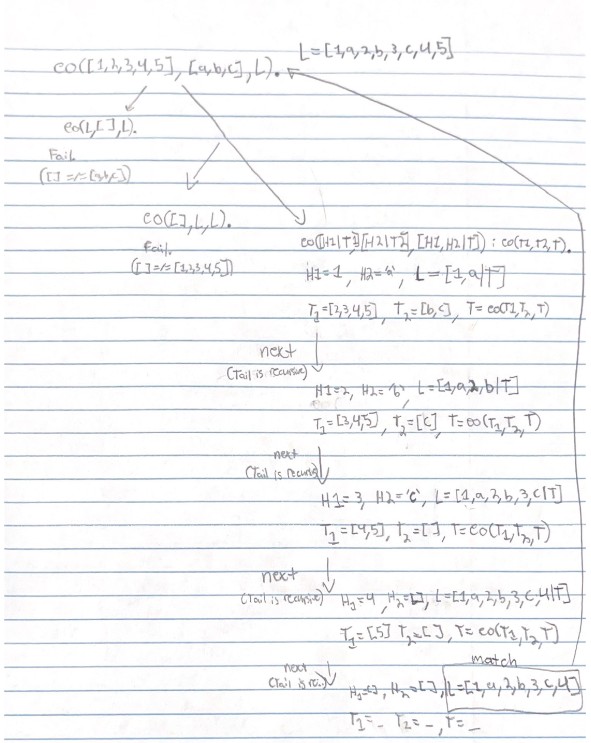 L=[1,a,2,b,3,c,4,5]
co([1,2,3,4,5], [a,b,c], L).
co(L,[],L).
Fail
([]=/=[a,b,c])
co([],L,L).
Fail.
([]=/=[1,2,3,4,5])
co([H1|T1][H2|T2], [H1,H2|T]) : co(T1,T2,T).
H1=1, H2='a', L=[1,a|T]
T1=[2,3,4,5], T2=[b,c], T=co(T1,T2,T)
next
(Tail is recursive)
H1=2, H2='b', L=[1,a,2,b|T]
T1=[3,4,5], T2=[c], T=co(T1,T2,T)
next
(Tail is recursive)
H1=3, H2='c', L=[1,a,2,b,3,c|T]
T1=[4,5], T2=[], T=co(T1,T2,T)
next
(Tail is recursive)
H1=4, H2=[], L=[1,a,2,b,3,c,4|T]
T1=[5] T2=[], T=co(T1,T2,T)
match
next
(Tail is
H1=[], H2=[], L=[1,a,2,b,3,c,4]
T1=_ T2=_, T=_